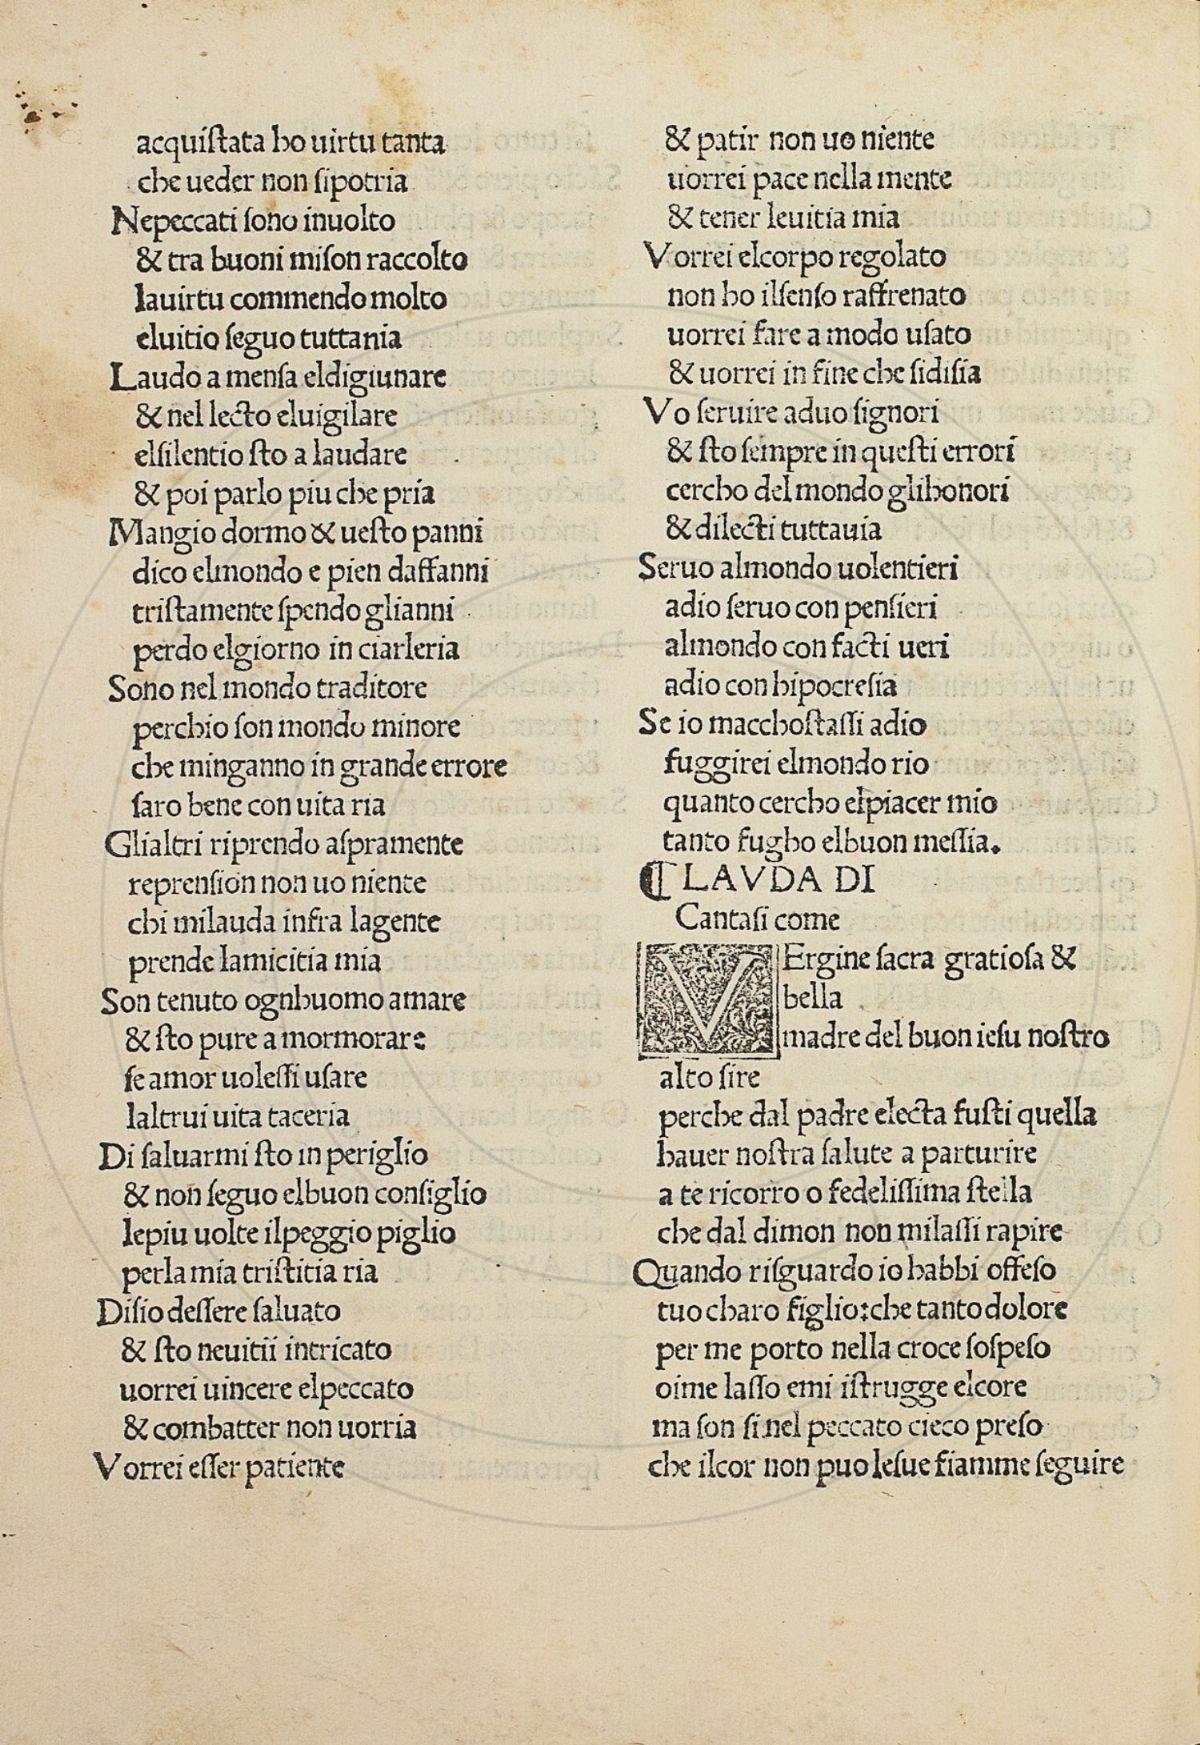 acquiſtata ho uirtu tanta
che ueder non ſipotria
Nepeccati ſono inuolto
& tra buoni miſon raccolto
lauirtu commendo molto
eluitio ſeguo tuttania
Laudo a menſa eldigiunare
& nel lecto eluigilare
elſilentio ſto a laudare
& poi parlo piu che pria
Mangio dormo & ueſto panni
dico elmondo e pien daffanni
triſtamente ſpendo glianni
perdo elgiorno in ciarleria
Sono nel mondo traditore
perchio ſon mondo minore
che minganno in grande errore
ſaro bene con uita ria
Glialtri riprendo aſpramente
reprenſion non uo niente
chi milauda infra lagente
prende lamicitia mia
Son tenuto ognhuomo amare
& ſto pure a mormorare
ſe amor uoleſſi uſare
laltrui uita taceria
Di ſaluarmi ſto in periglio
& non ſeguo elbuon conſiglio
lepiu uolte ilpeggio piglio
perla mia triſtitia ria
Diſio deſſere ſaluato
& ſto neuitii intricato
uorrei uincere elpeccato
& combatter non uorria
Vorrei eſſer patiente
& patir non uo niente
uorrei pace nella mente
& tener leuitia mia
Vorrei elcorpo regolato
non ho ilſenſo raffrenato
uorrei fare a modo uſato
& uorrei in fine che ſidiſia
Vo ſeruire aduo ſignori
& ſto ſempre in queſti errori
cercho del mondo glihonori
& dilecti tuttauia
Seruo almondo uolentieri
adio ſeruo con penſieri
almondo con facti ueri
adio con hipocreſia
Se io macchoſtaſſi adio
fuggirei elmondo rio
quanto cercho elpiacer mio
tanto fugho elbuon meſſia.
¶ LAVDA DI
Cantaſi come
VErgine ſacra gratioſa &
bella
madre del buon ieſu noſtro
alto ſire
perche dal padre electa fuſti quella
hauer noſtra ſalute a parturire
a te ricorro o fedeliſſima ſtella
che dal dimon non milaſſi rapire
Quando riſguardo io habbi offeſo
tuo charo figlio:che tanto dolore
per me porto nella croce ſoſpeſo
oime laſſo emi iſtrugge elcore
ma ſon ſi nel peccato cieco preſo
che ilcor non puo leſue fiamme ſeguire